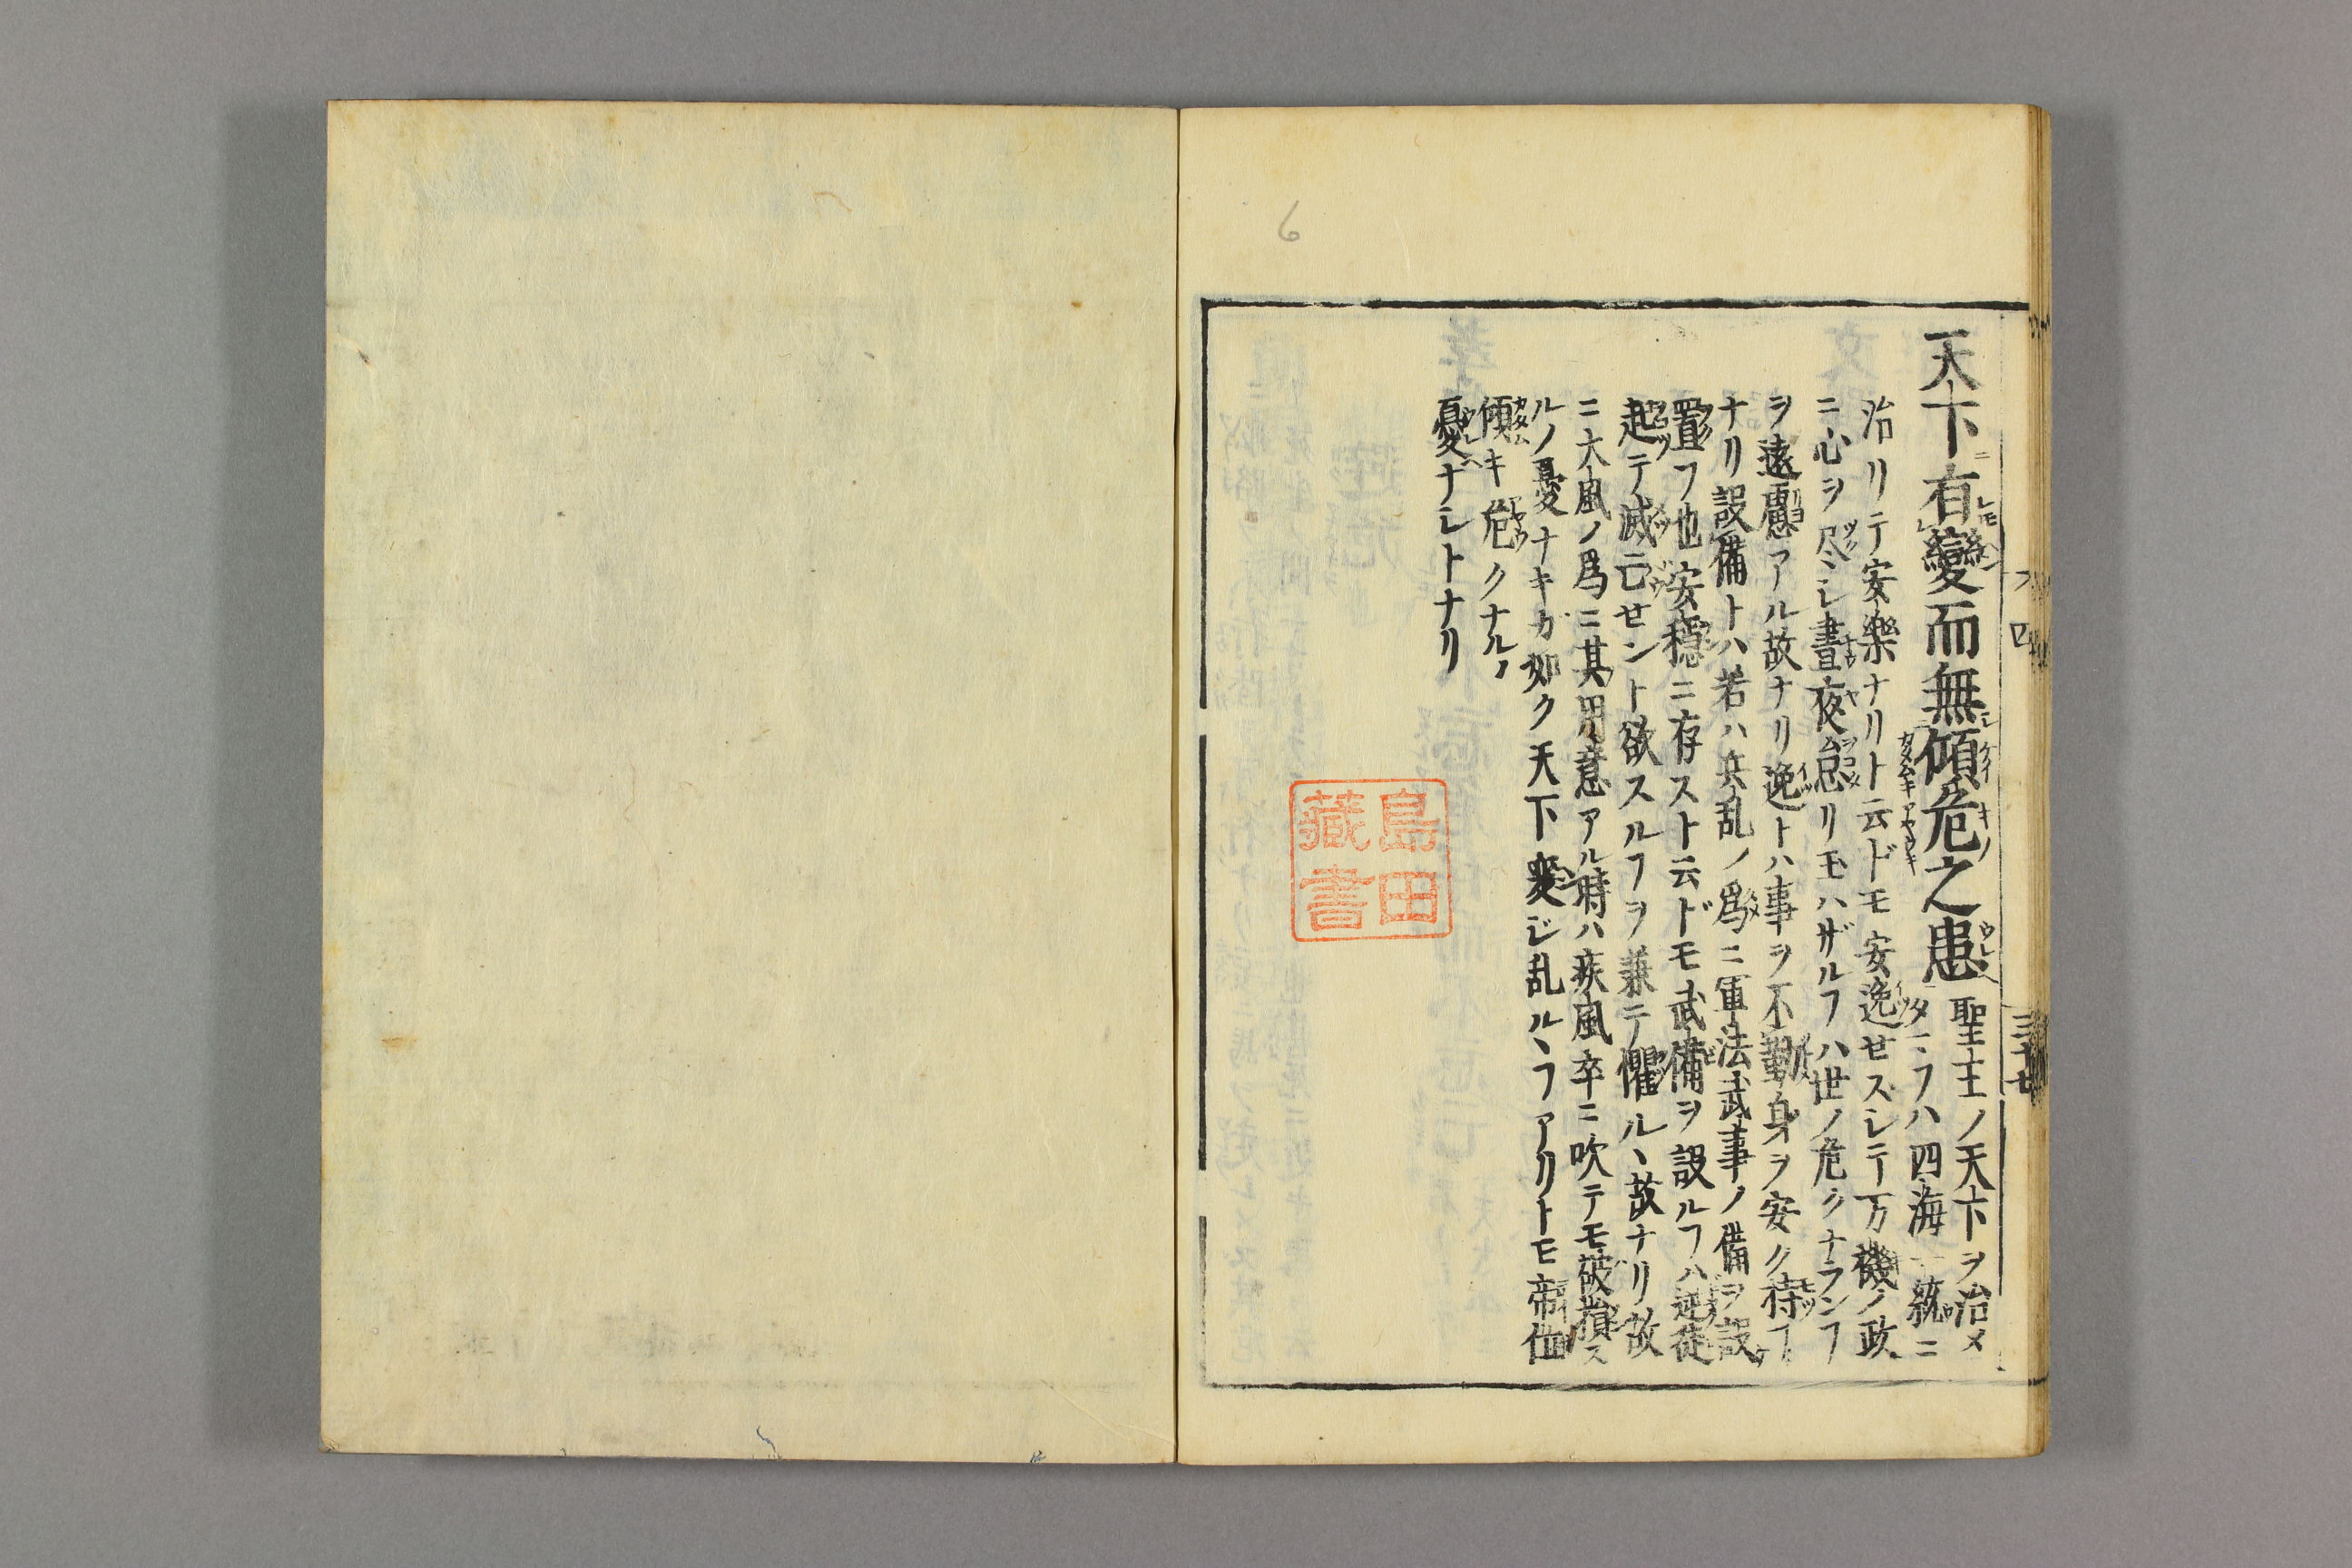 天下有變而無傾危之患 聖主ノ天下ヲ治メ
タニフハ四海一統ニ
治リテ安樂ナリト云ドモ安逸せズシテ万機ノ政
ニ心ヲ尽シ晝夜怠リ玉ハザルフハ世ノ危クナランフ
ヲ遠慮アル故ナリ逸トハ事ヲ不勤身ヲ安ク持フ
ナリ設備トハ若ハ兵乱ノ爲ニ軍法武事ノ備ヲ設
置フ也安穏ニ存スト云ドモ武備ヲ設ルフハ逆徒
起テ滅亡せント欲スルフヲ兼テ懼ル丶故ナリ故
ニ大風ノ爲ニ其用意アル時ハ疾風卒ニ吹テモ破損ス
ルノ憂ナキガ如ク天下変ジ乱ル丶フアリトモ帝位
傾キ危クナルノ
憂ナシトナリ
四
三十七
島田
藏書
6